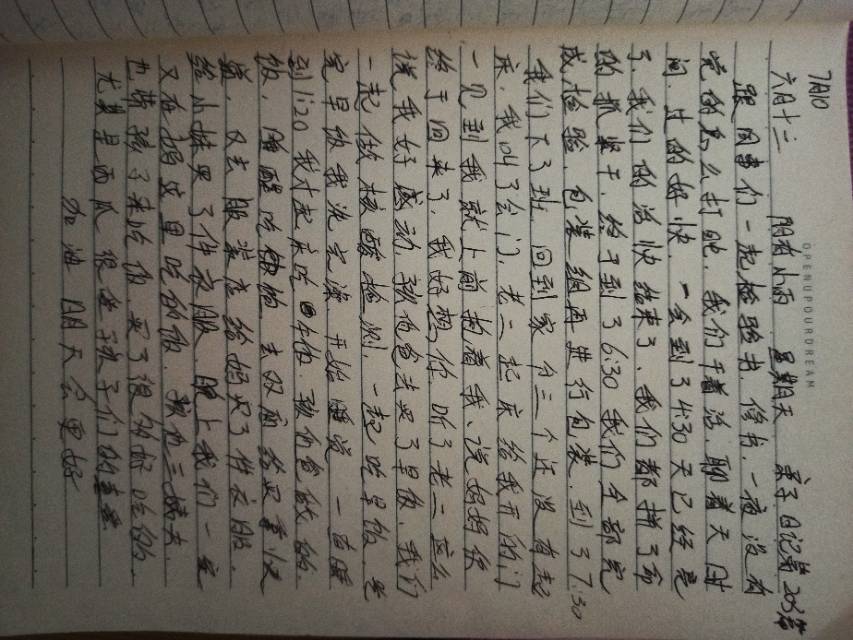 7月10
六月十二 阴有小雨 星期天 亲子日记第205篇
OPENUPOURDREAM
跟同事们一起检验书，修书，一夜没有
觉的怎么打吨，我们干着活，聊着天时
间过的好快，一会到了4:30天已经亮
了，我们的活快结束了，我们都拼了命
的抓紧干，终于到了6:30我们全部完
成检验，包装组再进行包装，到了7:30
我们下了班，回到家，三个还没有起
床，我叫了会门，老二起床给我开的门
一见到我就上前抱着我，说妈妈你
终于回来了，我好想你，听了老二这么
说我好感动，孩他爸去买了早饭，我们
一起做核酸检测，一起吃早饭，吃
完早饭我洗完澡开始睡觉，一直睡
到1:20我才起来吃午饭，孩他爸做的
饭，睡醒吃
又去服装店给妈买了件衣服
给小妹买了件衣服，晚上我们一家
又在妈这里吃的饭，孩他三姨夫
也带孩子来吃饭，买了很多好吃的，
尤其是西瓜很受孩子们的喜爱
加油 明天会更好